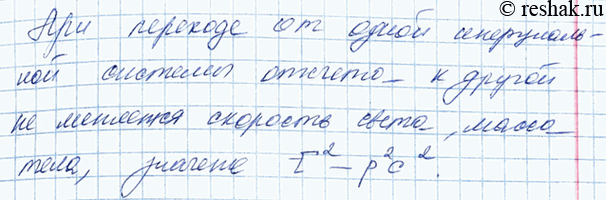 © reshak.ru
При переходе от одной инерциаль-
ной системы отсчета к другой
не меняется скорость света, масса
тела, значение E² - p²c².